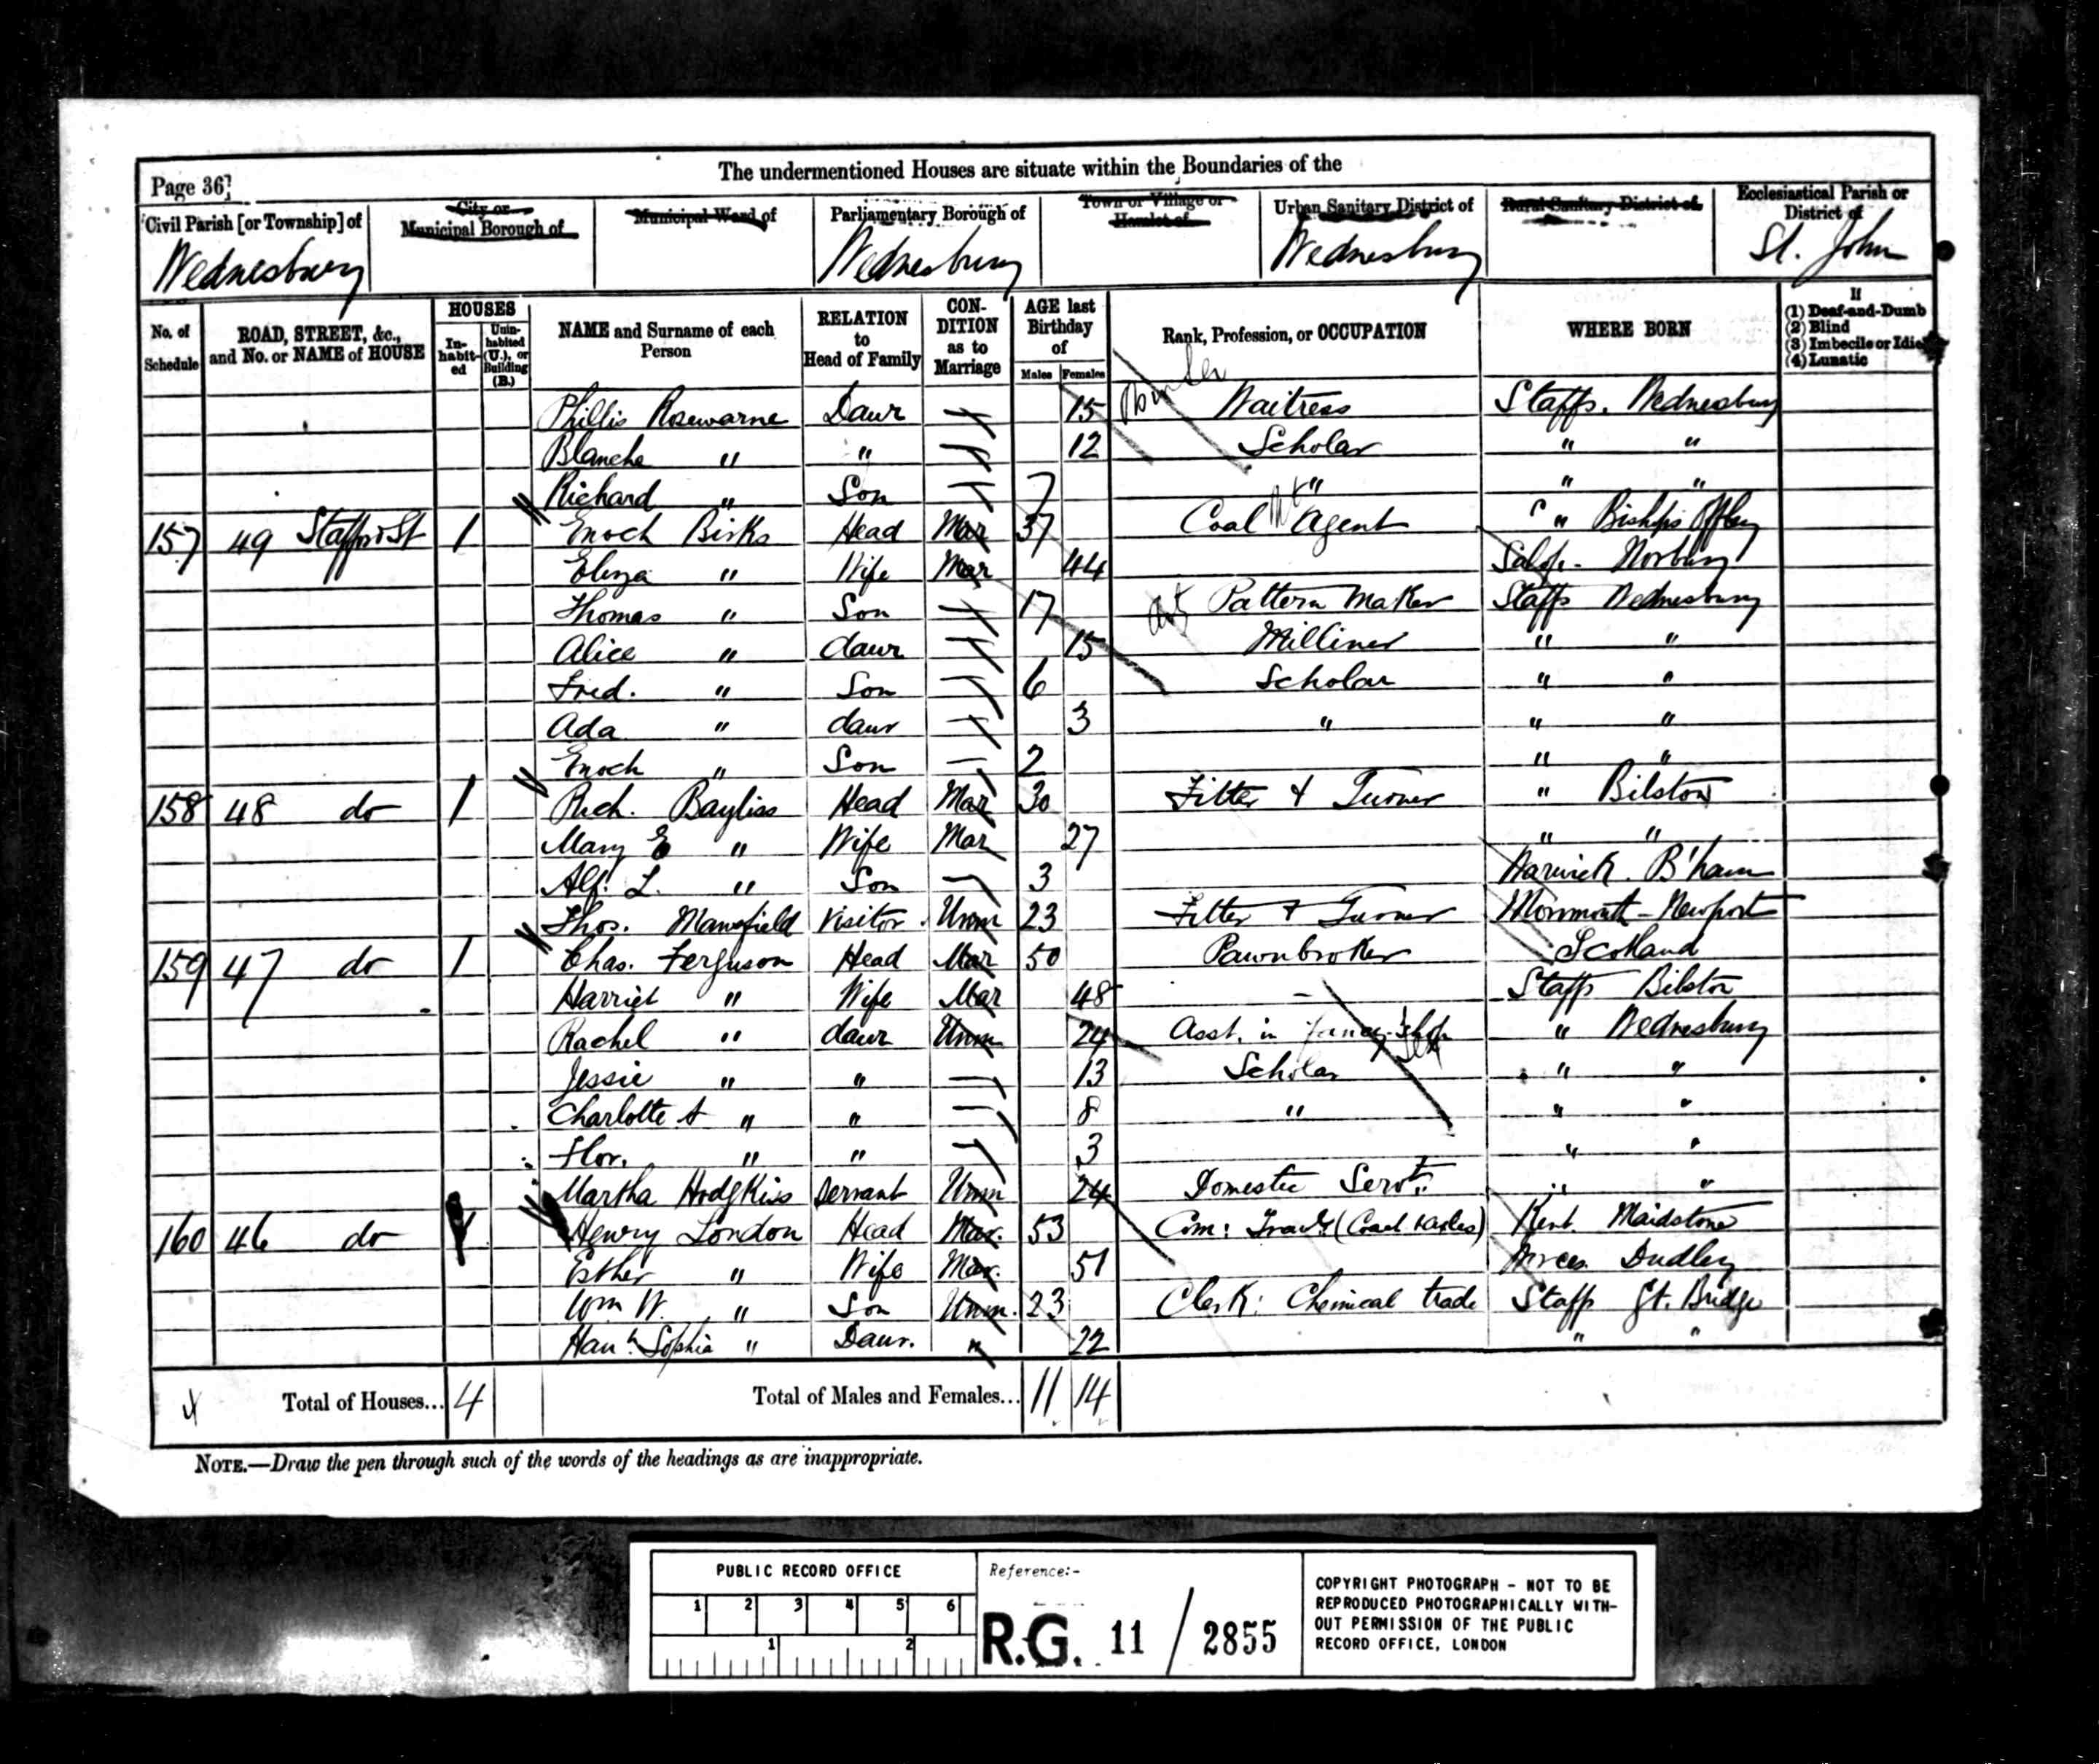 The undermentioned Houses are situate within the Boundaries of the
Page 36]
Civil Parish [or Township] of
City or Municipal Borough of
Municipal Ward of
Parliamentary Borough of
Town or Village or Hamlet of
Urban Sanitary District of
Rural Sanitary District of
Ecclesiastical Parish or District of
Wednesbury Wednesbury Wednesbury St. John
No. of Schedule
ROAD, STREET, &c., and No. or NAME of HOUSE
HOUSES
In-habit-ed
Unin-habited (U.), or Building (B.)
NAME and Surname of each Person
RELATION to Head of Family
CON-DITION as to Marriage
AGE last Birthday of
Males Females
Rank, Profession, or OCCUPATION
WHERE BORN
If
(1) Deaf-and-Dumb
(2) Blind
(3) Imbecile or Idiot
(4) Lunatic
Phillis Rosewarne Daur 15 Waitress Staffs. Wednesbury
Blanche " " 12 Scholar " "
Richard " Son 7 " " "
157 49 Stafford St 1 Enoch Birks Head Mar 37 Coal Agent " Bishops Offley
Eliza " Wife Mar 44 Salop - Norbury
Thomas " Son 17 Pattern Maker Staffs Wednesbury
Alice " daur 15 Milliner " "
Fred. " Son 6 Scholar " "
Ada " daur 3 " " "
Enoch " Son 2 " "
158 48 do 1 Rich. Bayliss Head Mar 30 Fitter & Turner " Bilston
Mary E " Wife Mar 27 " "
Alf. L. " Son 3 Warwick. B'ham
Thos. Mansfield Visitor Unm 23 Fitter & Turner Monmouth - Newport
159 47 do 1 Chas. Ferguson Head Mar 50 Pawnbroker Scotland
Harriet " Wife Mar 48 - Staffs Bilston
Rachel " daur Unm 24 Asst. in fancy shop " Wednesbury
Jessie " " 13 Scholar " "
Charlotte A " " 8 " " "
Flor. " " 3 " "
Martha Hodgkiss Servant Unm 24 Domestic Servt. " "
160 46 do 1 Henry London Head Mar. 53 Com: Travlr (Coach & axles) Kent. Maidstone
Esther " Wife Mar. 51 Worces. Dudley
Wm W. " Son Unm. 23 Clerk: Chemical trade Staffs Gt. Bridge
Hanh. Sophia " Daur. " 22 " "
Total of Houses... 4 Total of Males and Females... 11 14
NOTE.—Draw the pen through such of the words of the headings as are inappropriate.
PUBLIC RECORD OFFICE
1 2 3 4 5 6
1 2
Reference:-
R.G. 11 / 2855
COPYRIGHT PHOTOGRAPH - NOT TO BE
REPRODUCED PHOTOGRAPHICALLY WITH-
OUT PERMISSION OF THE PUBLIC
RECORD OFFICE, LONDON